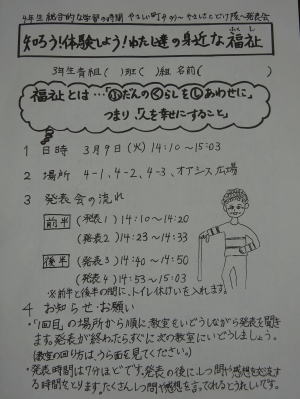 4年生 総合的な学習の時間 やさしい町から～やさしさとどけ隊～発表会
知ろう!体験しよう!わたし達の身近な福祉
3年生普組( )班( )組 名前( )
福祉とは…「ふだんのくらしをしあわせに」
つまり、「人を幸せにすること」
1 日時 3月9日(火) 14:10～15:03
2 場所 4-1、4-2、4-3、オアシス広場
3 発表会の流れ
前半 (発表1) 14:10～14:20
(発表2) 14:23～14:33
後半 (発表3) 14:40～14:50
(発表4) 14:53～15:03
※前半と後半の間に、トイレ休けいを入れます。
4 お知らせ・お願い
・「1回目」の場所から順に教室をいどうしながら発表を聞き
ます。発表が終わったらすぐに次の教室にいどうしましょう。
(教室の回り方は、うら面を見てください。)
・発表時間は7分ほどです。発表の後にしつ問や感想を交流す
る時間をとります。たくさんしつ問や感想を言ってくれるとうれしいです。